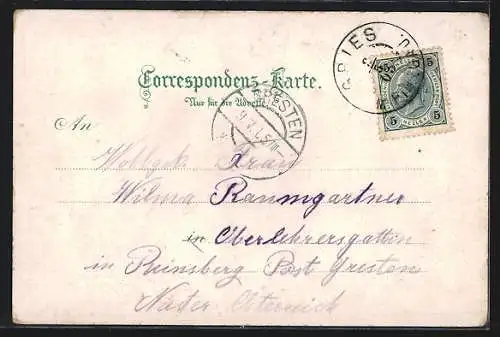 Correspondenz-Karte.
Nur für die Adresse.
GRIES
5 5
5 HELLER 5
GRESTEN
An
Wohlgeb. Frau
Wilma Baumgartner
in Oberlehrersgattin
in Reinsberg Post Gresten
Nieder